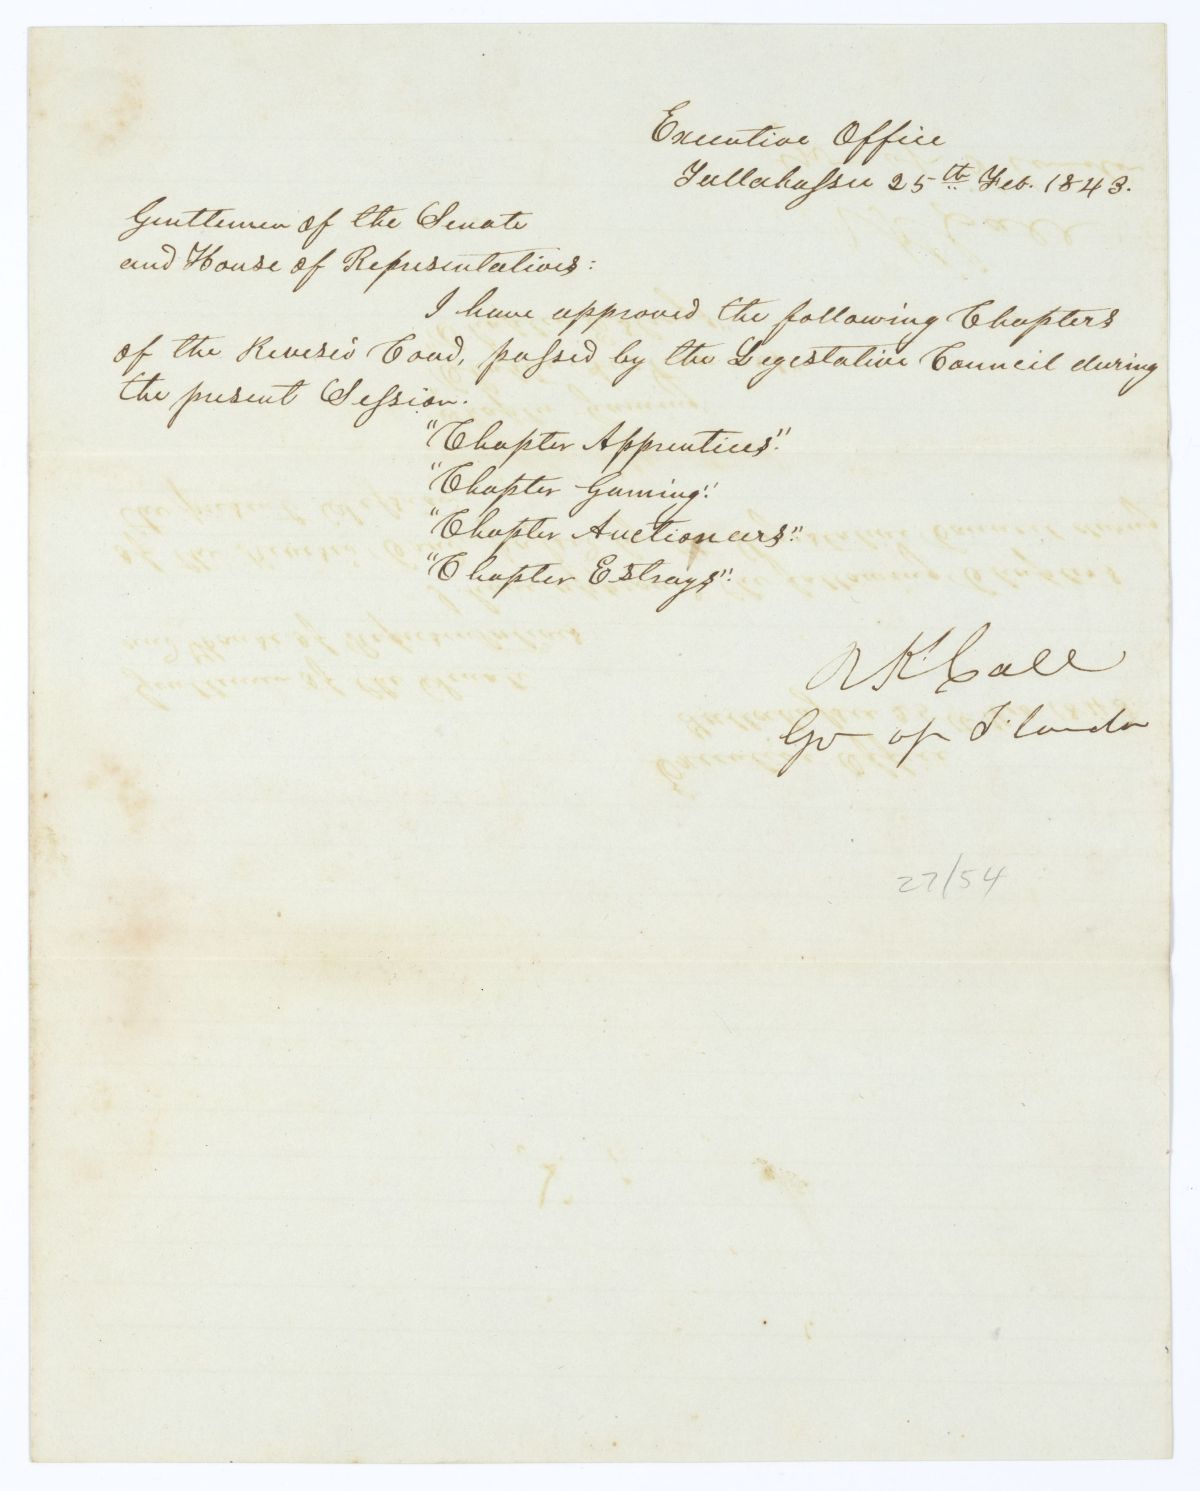 Executive Office
Tallahassee 25th Feb. 1843.
Gentlemen of the Senate
and House of Representatives:
I have approved the following Chapters
of the Revised Coad, passed by the Legestative Council during
the present Session.
"Chapter Apprentices".
"Chapter Gaming".
"Chapter Auctioneers".
"Chapter Estrays".
R K Call
Gov of Florida
27/54